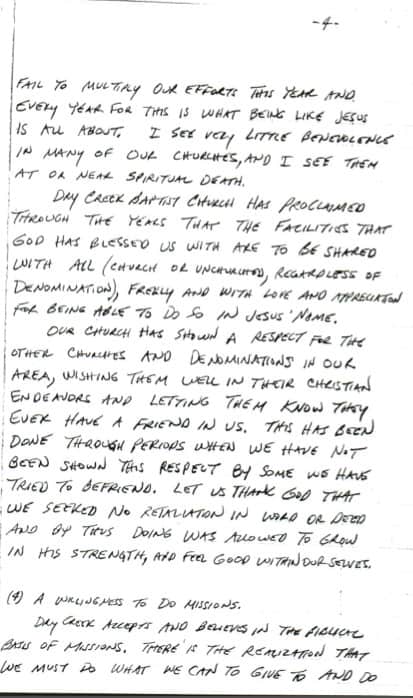 -4-
FAIL TO MULTIPLY OUR EFFORTS THIS YEAR AND
EVERY YEAR FOR THIS IS WHAT BEING LIKE JESUS
IS ALL ABOUT. I SEE VERY LITTLE BENEVOLENCE
IN MANY OF OUR CHURCHES, AND I SEE THEM
AT OR NEAR SPIRITUAL DEATH.
DRY CREEK BAPTIST CHURCH HAS PROCLAIMED
THROUGH THE YEARS THAT THE FACILITIES THAT
GOD HAS BLESSED US WITH ARE TO BE SHARED
WITH ALL (CHURCH OR UNCHURCHED, REGARDLESS OF
DENOMINATION), FREELY AND WITH LOVE AND APPRECIATION
FOR BEING ABLE TO DO SO IN JESUS' NAME.
OUR CHURCH HAS SHOWN A RESPECT FOR THE
OTHER CHURCHES AND DENOMINATIONS IN OUR
AREA, WISHING THEM WELL IN THEIR CHRISTIAN
ENDEAVORS AND LETTING THEM KNOW THEY
EVER HAVE A FRIEND IN US. THIS HAS BEEN
DONE THROUGH PERIODS WHEN WE HAVE NOT
BEEN SHOWN THIS RESPECT BY SOME WE HAVE
TRIED TO BEFRIEND. LET US THANK GOD THAT
WE SEEKED NO RETALIATION IN WORD OR DEED
AND BY THUS DOING WAS ALLOWED TO GROW
IN HIS STRENGTH, AND FEEL GOOD WITHIN OURSELVES.
(4) A WILLINGNESS TO DO MISSIONS.
DRY CREEK ACCEPTS AND BELIEVES IN THE BIBLICAL
BASIS OF MISSIONS. THERE'S THE REALIZATION THAT
WE MUST DO WHAT WE CAN TO GIVE TO AND DO